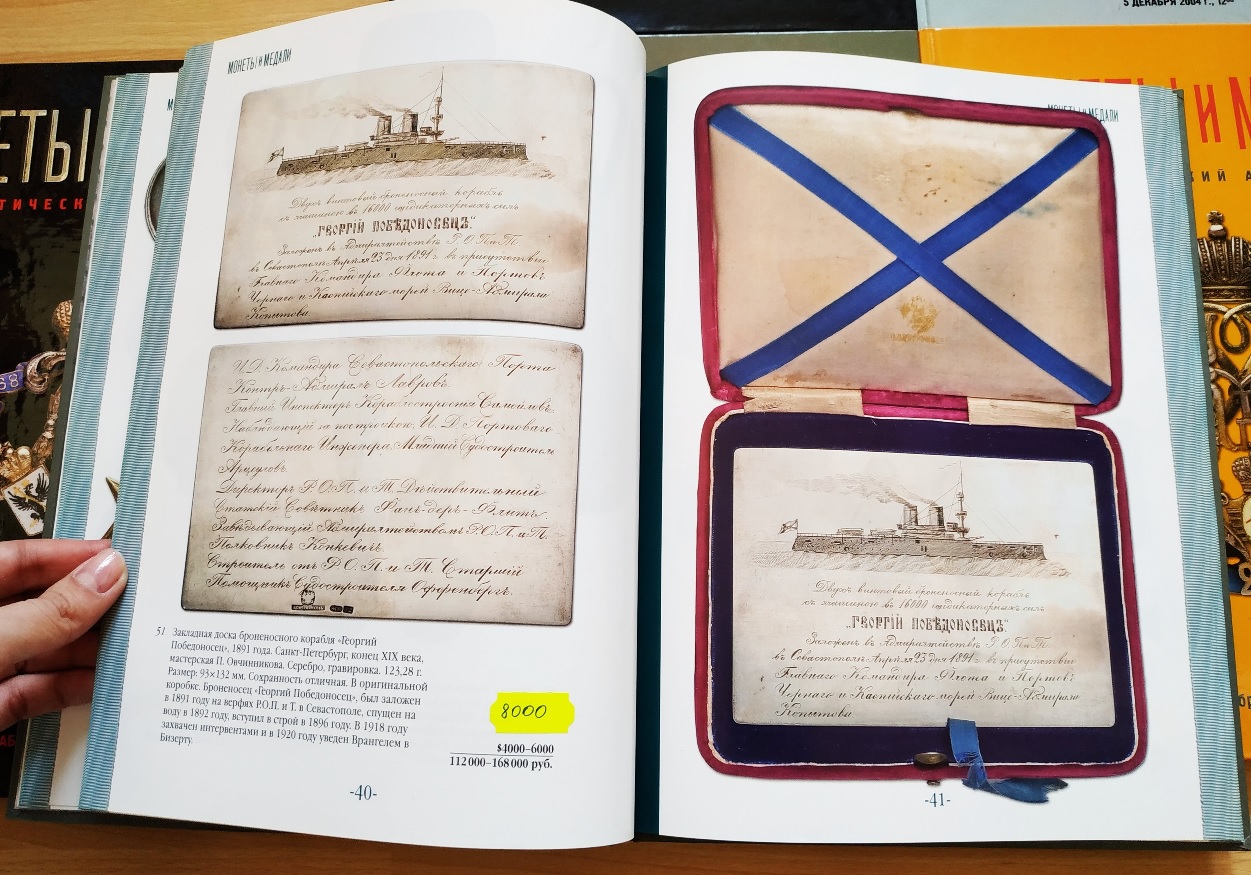 МОНЕТЫ И МЕДАЛИ
Двухъ винтовый броненосный корабль
съ машиною въ 16000 индикаторныхъ силъ
„ГЕОРГІЙ ПОБѢДОНОСЕЦЪ".
Заложенъ въ Адмиралтействѣ Р.О.П и Т.
въ Севастополѣ Апрѣля 23 дня 1891 г. въ присутствіи
Главнаго Командира Флота и Портовъ
Чернаго и Каспійскаго морей Вице-Адмирала
Копытова
И.Д. Командира Севастопольскаго Порта
Контръ-Адмиралъ Лавровъ.
Главный Инспекторъ Кораблестроенія Самойловъ.
Наблюдающій за постройкою, И.Д. Портоваго
Корабельнаго Инженера, Младшій Судостроитель
Арцеуловъ.
Директоръ Р.О.П. и Т. Дѣйствительный
Статскій Совѣтникъ Фанъ-деръ-Флитъ.
Завѣдывающій Адмиралтействомъ Р.О.П. и Т.
Полковникъ Конкевичъ.
Строитель отъ Р.О.П. и Т. Старшій
Помощникъ Судостроителя Оффенбергъ.
51 Закладная доска броненосного корабля «Георгий
Победоносец», 1891 года. Санкт-Петербург, конец XIX века,
мастерская П. Овчинникова. Серебро, гравировка. 123,28 г.
Размер: 93×132 мм. Сохранность отличная. В оригинальной
коробке. Броненосец «Георгий Победоносец», был заложен
в 1891 году на верфях Р.О.П. и Т. в Севастополе, спущен на
воду в 1892 году, вступил в строй в 1896 году. В 1918 году
захвачен интервентами и в 1920 году уведен Врангелем в
Бизерту.
8000
$4000–6000
112 000–168 000 руб.
-40-
МОНЕТЫ И МЕДАЛИ
Двухъ винтовый броненосный корабль
съ машиною въ 16000 индикаторныхъ силъ
„ГЕОРГІЙ ПОБѢДОНОСЕЦЪ".
Заложенъ въ Адмиралтействѣ Р.О.П и Т.
въ Севастополѣ Апрѣля 23 дня 1891 г. въ присутствіи
Главнаго Командира Флота и Портовъ
Чернаго и Каспійскаго морей Вице-Адмирала
Копытова
-41-
5 ДЕКАБРЯ 2004 Г., 12⁰⁰